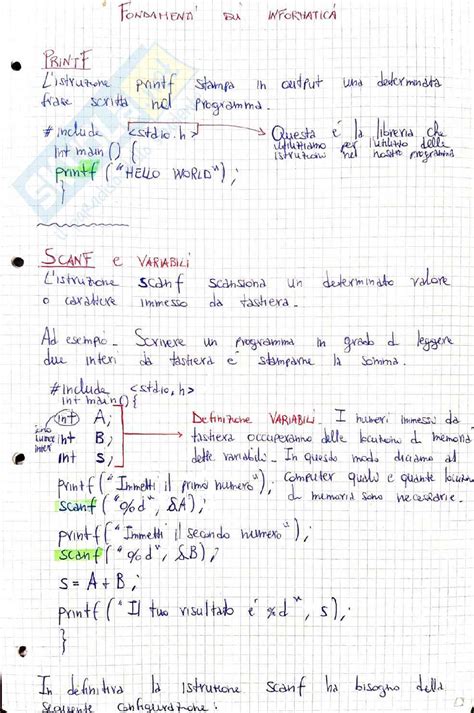 FONDAMENTI DI INFORMATICA
PRINTF
L'istruzione printf stampa in output una determinata
frase scritta nel programma.
#include <stdio.h> → Questa é la libreria che
int main() { utilizziamo per l'utilizzo delle
istruzioni nel nostro programma
printf ("HELLO WORLD");
}
SCANF e VARIABILI
L'istruzione scanf scansiona un determinato valore
o carattere immesso da tastiera.
Ad esempio - Scrivere un programma in grado di leggere
due interi da tastiera e stamparne la somma.
#include <stdio,h>
int main(){
int A; Definizione VARIABILI. I numeri immessi da
int B; → tastiera occuperanno delle locazioni di memoria
int S; delle variabili. In questo modo diciamo al
printf("Immetti il primo numero"); computer quali e quante locazioni
scanf ("%d", &A); di memoria sono necessarie.
printf ("Immetti il secondo numero");
scanf ("%d", &B);
S = A + B;
printf ("Il tuo risultato é %d", s);
}
In definitiva la istruzione scanf ha bisogno della
seguente configurazione: